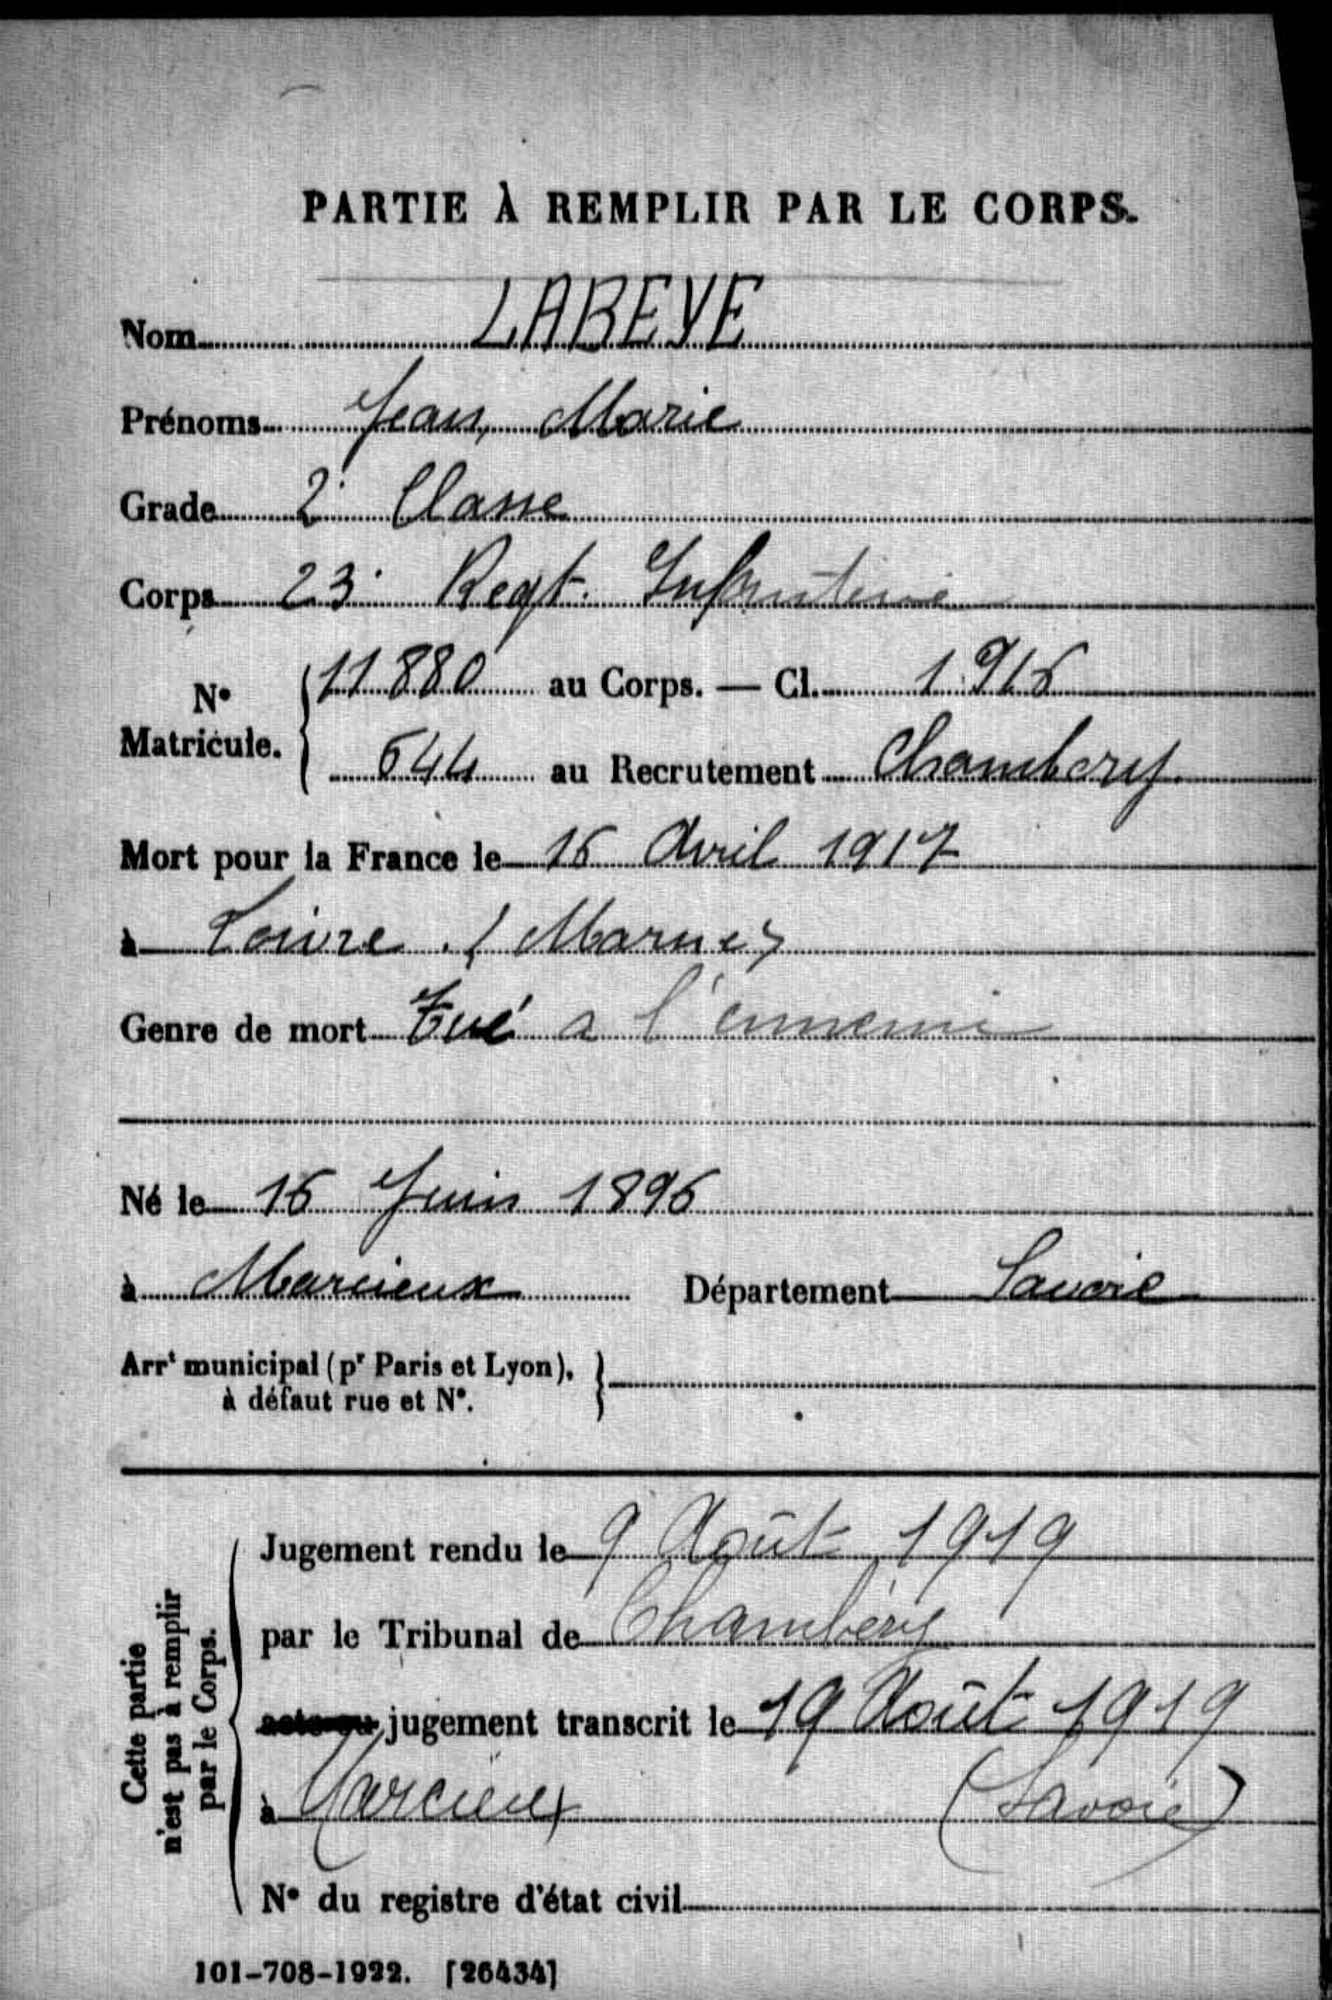 PARTIE À REMPLIR PAR LE CORPS.
Nom LABEYE
Prénoms Jean, Marie
Grade 2e Classe
Corps 23e Regt. Infanterie
No Matricule. { 11880 au Corps. — Cl. 1916
644 au Recrutement Chambery
Mort pour la France le 16 Avril 1917
à Loivre (Marne)
Genre de mort Tué a l'ennemi
Né le 16 Juin 1896
à Marcieux Département Savoie
Arrt municipal (pr Paris et Lyon), }
à défaut rue et No.
Cette partie
n'est pas à remplir
par le Corps.
Jugement rendu le 9 Août 1919
par le Tribunal de Chambéry
acte ou jugement transcrit le 19 Août 1919
à Marcieux (Savoie)
No du registre d'état civil
101-708-1922. [26434]